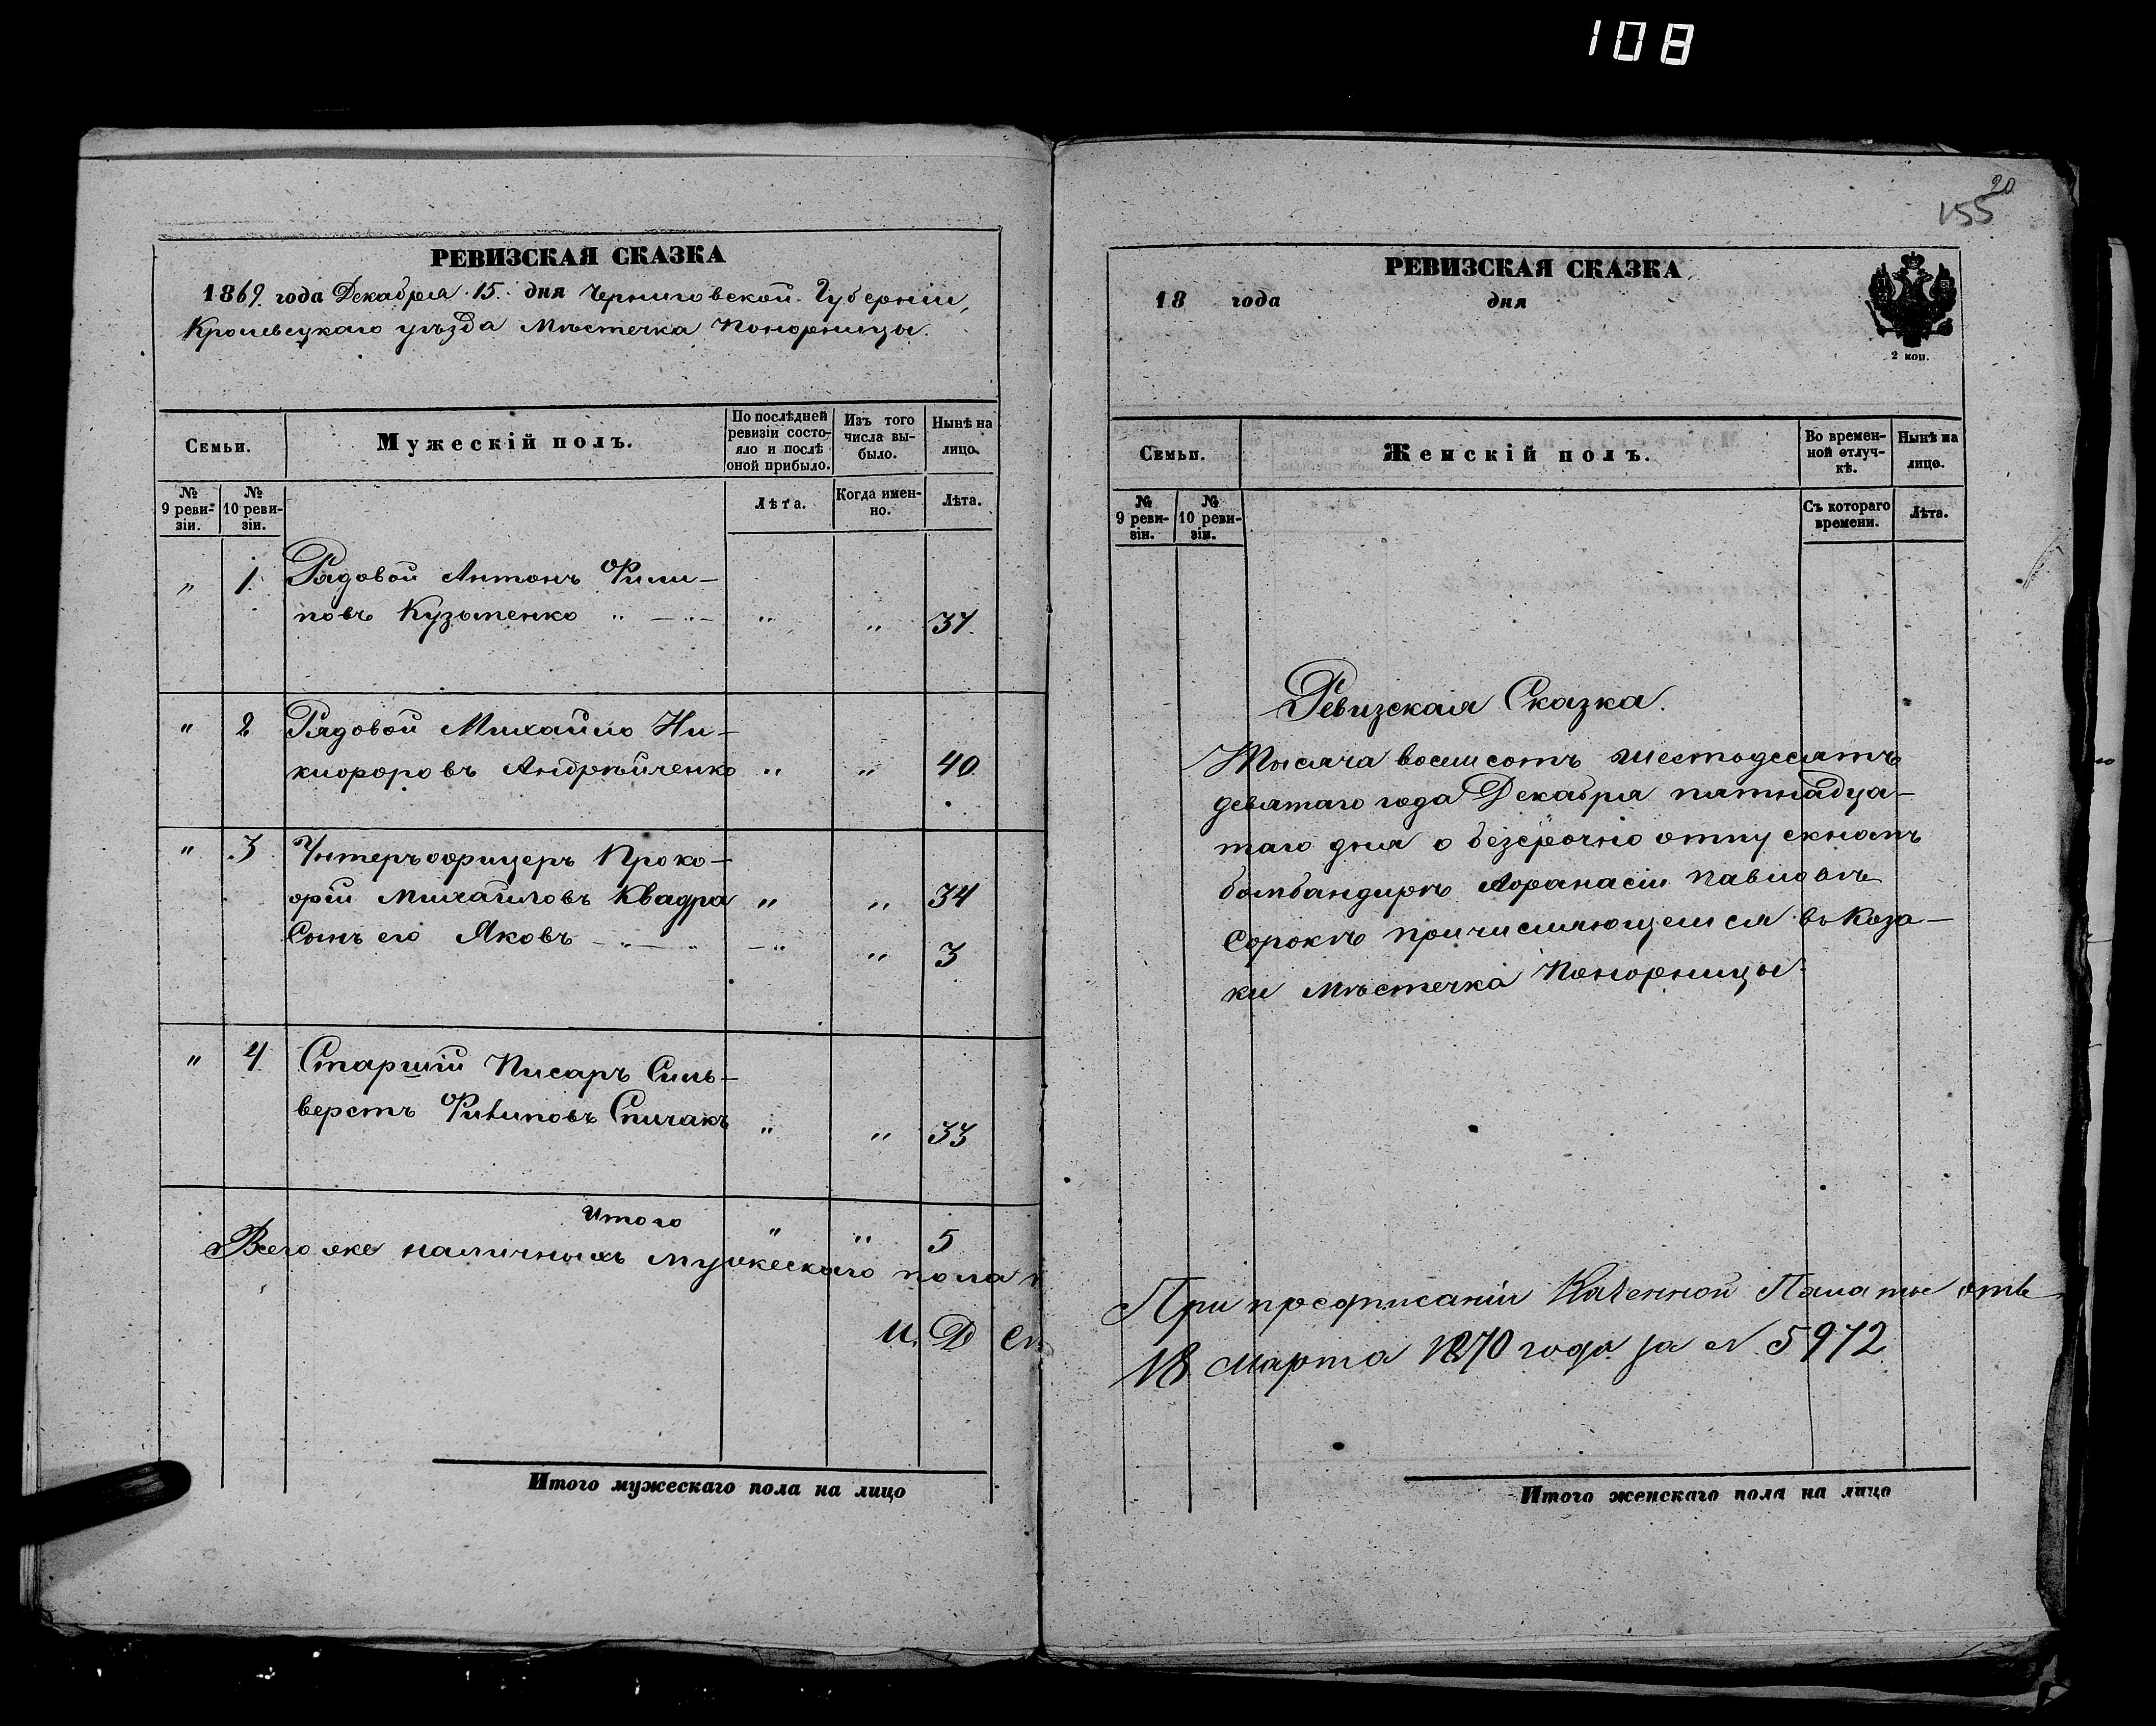 108
РЕВИЗСКАЯ СКАЗКА
1869 года Декабря 15 дня Черниговской Губерніи,
Кролевецкаго уѣзда Мѣстечка Понорницы.
Семьи.
Мужескій полъ.
По послѣдней ревизіи состояло и послѣ оной прибыло.
Изъ того числа выбыло.
Нынѣ на лицо.
№ 9 ревизіи.
№ 10 ревизіи.
Лѣта.
Когда именно.
Лѣта.
" 1 Рядовой Антонъ Фили-
повъ Кузьменко " — " — " " 37.
" 2 Рядовой Михайло Ни-
кифоровъ Андрѣйченко " " 40
" 3 Унтеръ офицеръ Проко-
фій Михайловъ Квадра " " 34
Сынъ его Яковъ — " — " — " " 3
" 4 Старшій Писарь Силь-
верстъ Филиповъ Спичакъ " " 33
Итого " " 5
Всего же наличныхъ мужескаго пола
И. Д
Итого мужескаго пола на лицо
20
155
РЕВИЗСКАЯ СКАЗКА
18 года дня
2 коп.
Семьи.
Женскій полъ.
Во временной отлучкѣ.
Нынѣ на лицо.
№ 9 ревизіи.
№ 10 ревизіи.
Съ котораго времени.
Лѣта.
Ревизская Сказка.
Тысяча восемсотъ шестодесятъ
девятаго года Декабря пятнадца-
таго дня о безсрочно отпускномъ
бомбандирѣ Афанасіи Павловѣ
Сорокѣ причисляющемся въ Каза-
ки Мѣстечка Понорницы.
При предписаніи Казенной Палаты отъ
18 Марта 1870 года за N 5972
Итого женскаго пола на лицо